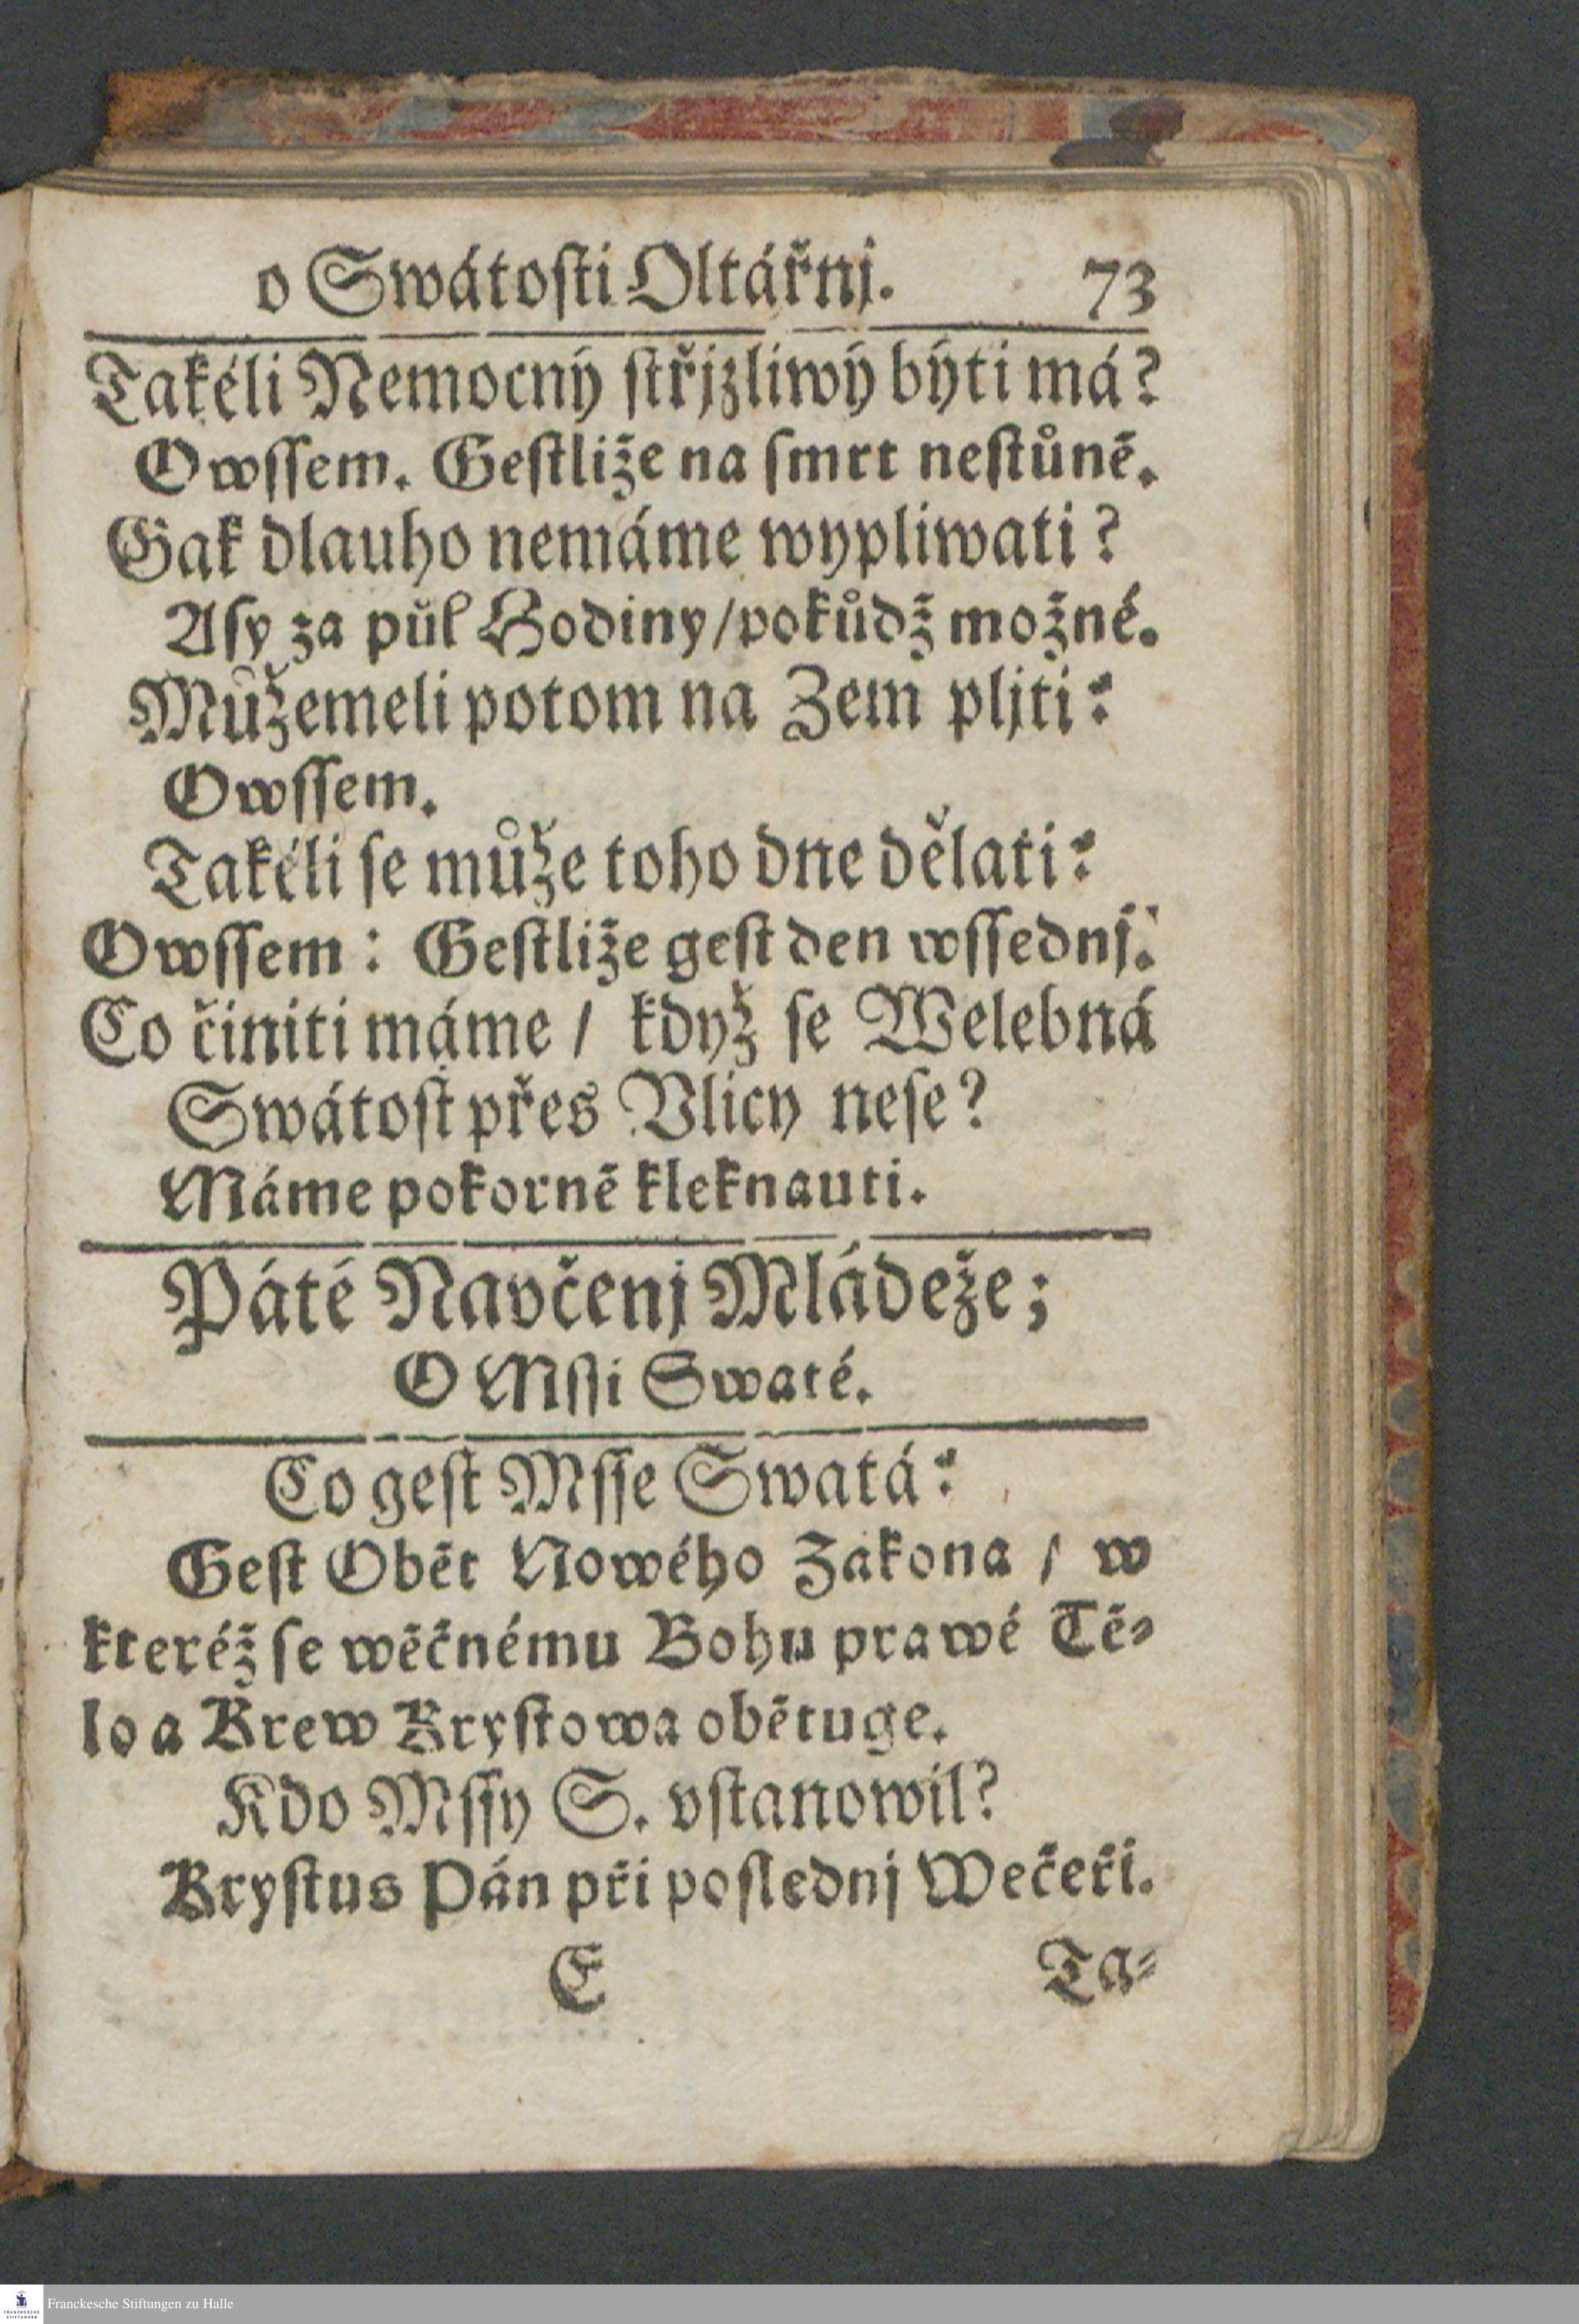 o Swátoſti Oltářnj. 73
Takéli Nemocný ſtřjzliwý býti má?
Owſſem. Geſtliže na ſmrt neſtůně.
Gak dlauho nemáme wypliwati?
Aſy za půl Hodiny/pokůdž možné.
Můžemeli potom na Zem pljti?
Owſſem.
Takéli ſe může toho dne dělati?
Owſſem: Geſtliže geſt den wſſednj.
Co činiti máme / když ſe Welebná
Swátoſt přes Vlicy neſe?
Máme pokorně kleknauti.
Páté Navčenj Mládeže;
O Mſſi Swaté.
Co geſt Mſſe Swatá?
Geſt Obět Nowého Zakona / w
kteréž ſe wěčnému Bohu prawé Tě-
lo a Krew Kryſtowa obětuge.
Kdo Mſſy S. vſtanowil?
Kryſtus Pán při poſlednj Wečeři.
E Ta-
Franckesche Stiftungen zu Halle
FRANCKESCHE
STIFTUNGEN